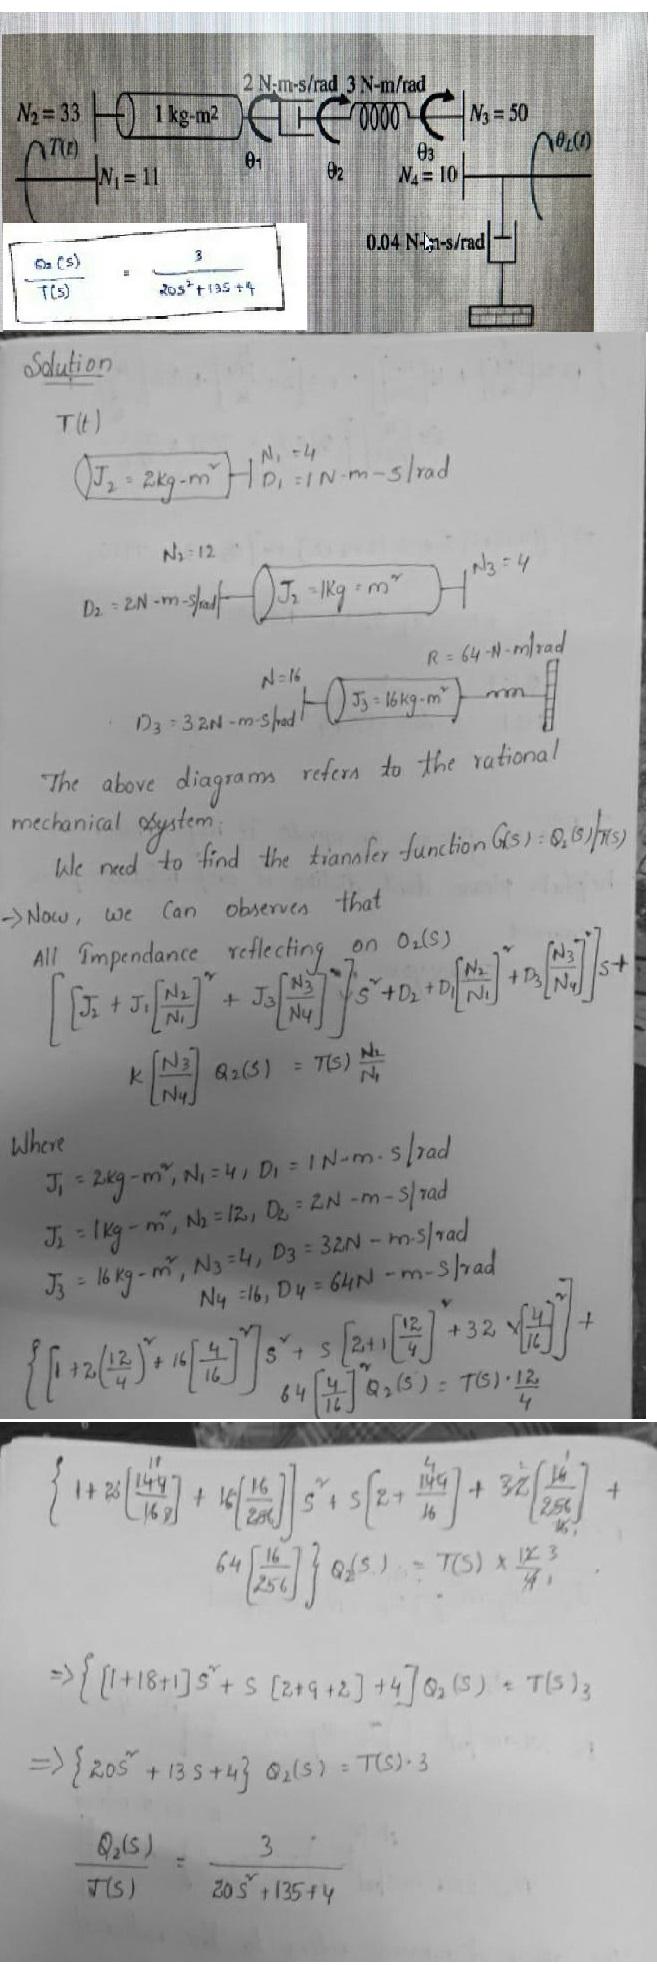 2 N-m-s/rad 3 N-m/rad
N₂ = 33 1 kg-m² N₃ = 50
T(t) θ₁ θ₂ θ₃ θL(t)
N₁ = 11 N₄ = 10
0.04 N-m-s/rad
Q₂(S) / T(S) = 3 / 20S² + 13S + 4
Solution
T(t)
J₂ = 2kg-m² N₁ = 4
D₁ = 1 N-m-s/rad
N₂ = 12 N₃ = 4
D₂ = 2N-m-s/rad J₂ = 1Kg = m²
R = 64-N-m/rad
N = 16 J₃ = 16kg-m²
D₃ = 32N-m-s/rad
The above diagrams refers to the rational
mechanical system.
We need to find the transfer function G(s) = Q₂(s)/T(s)
→ Now, we can observes that
All Impendance reflecting on O₂(s)
[[J₂ + J₁[N₂/N₁]² + J₃[N₃/N₄]²]s² + D₂ + D₁[N₂/N₁]² + D₃[N₃/N₄]²]s +
K[N₃/N₄] Q₂(s) = T(s) N₂/N₁
Where
J₁ = 2kg-m², N₁ = 4, D₁ = 1 N-m.s/rad
J₂ = 1kg-m², N₂ = 12, D₂ = 2N-m-s/rad
J₃ = 16kg-m², N₃ = 4, D₃ = 32N-m-s/rad
N₄ = 16, D₄ = 64N-m-s/rad
{[1 + 2(12/4)² + 16[4/16]²]s² + s[2 + 1[12/4]² + 32 × [4/16]²] +
64[4/16]² Q₂(s) = T(s) · 12/4
[144/16] + 16[16/256]]s² + s[2 + 144/16] + 32[16/256] +
64[16/256]} Q₂(s) = T(s) × 12/4
⇒ {[1+18+1]s² + s[2+9+2] + 4] Q₂(s) = T(s)3
⇒ {20s² + 13s + 4} Q₂(s) = T(s)·3
Q₂(s) / T(s) = 3 / 20s² + 13s + 4